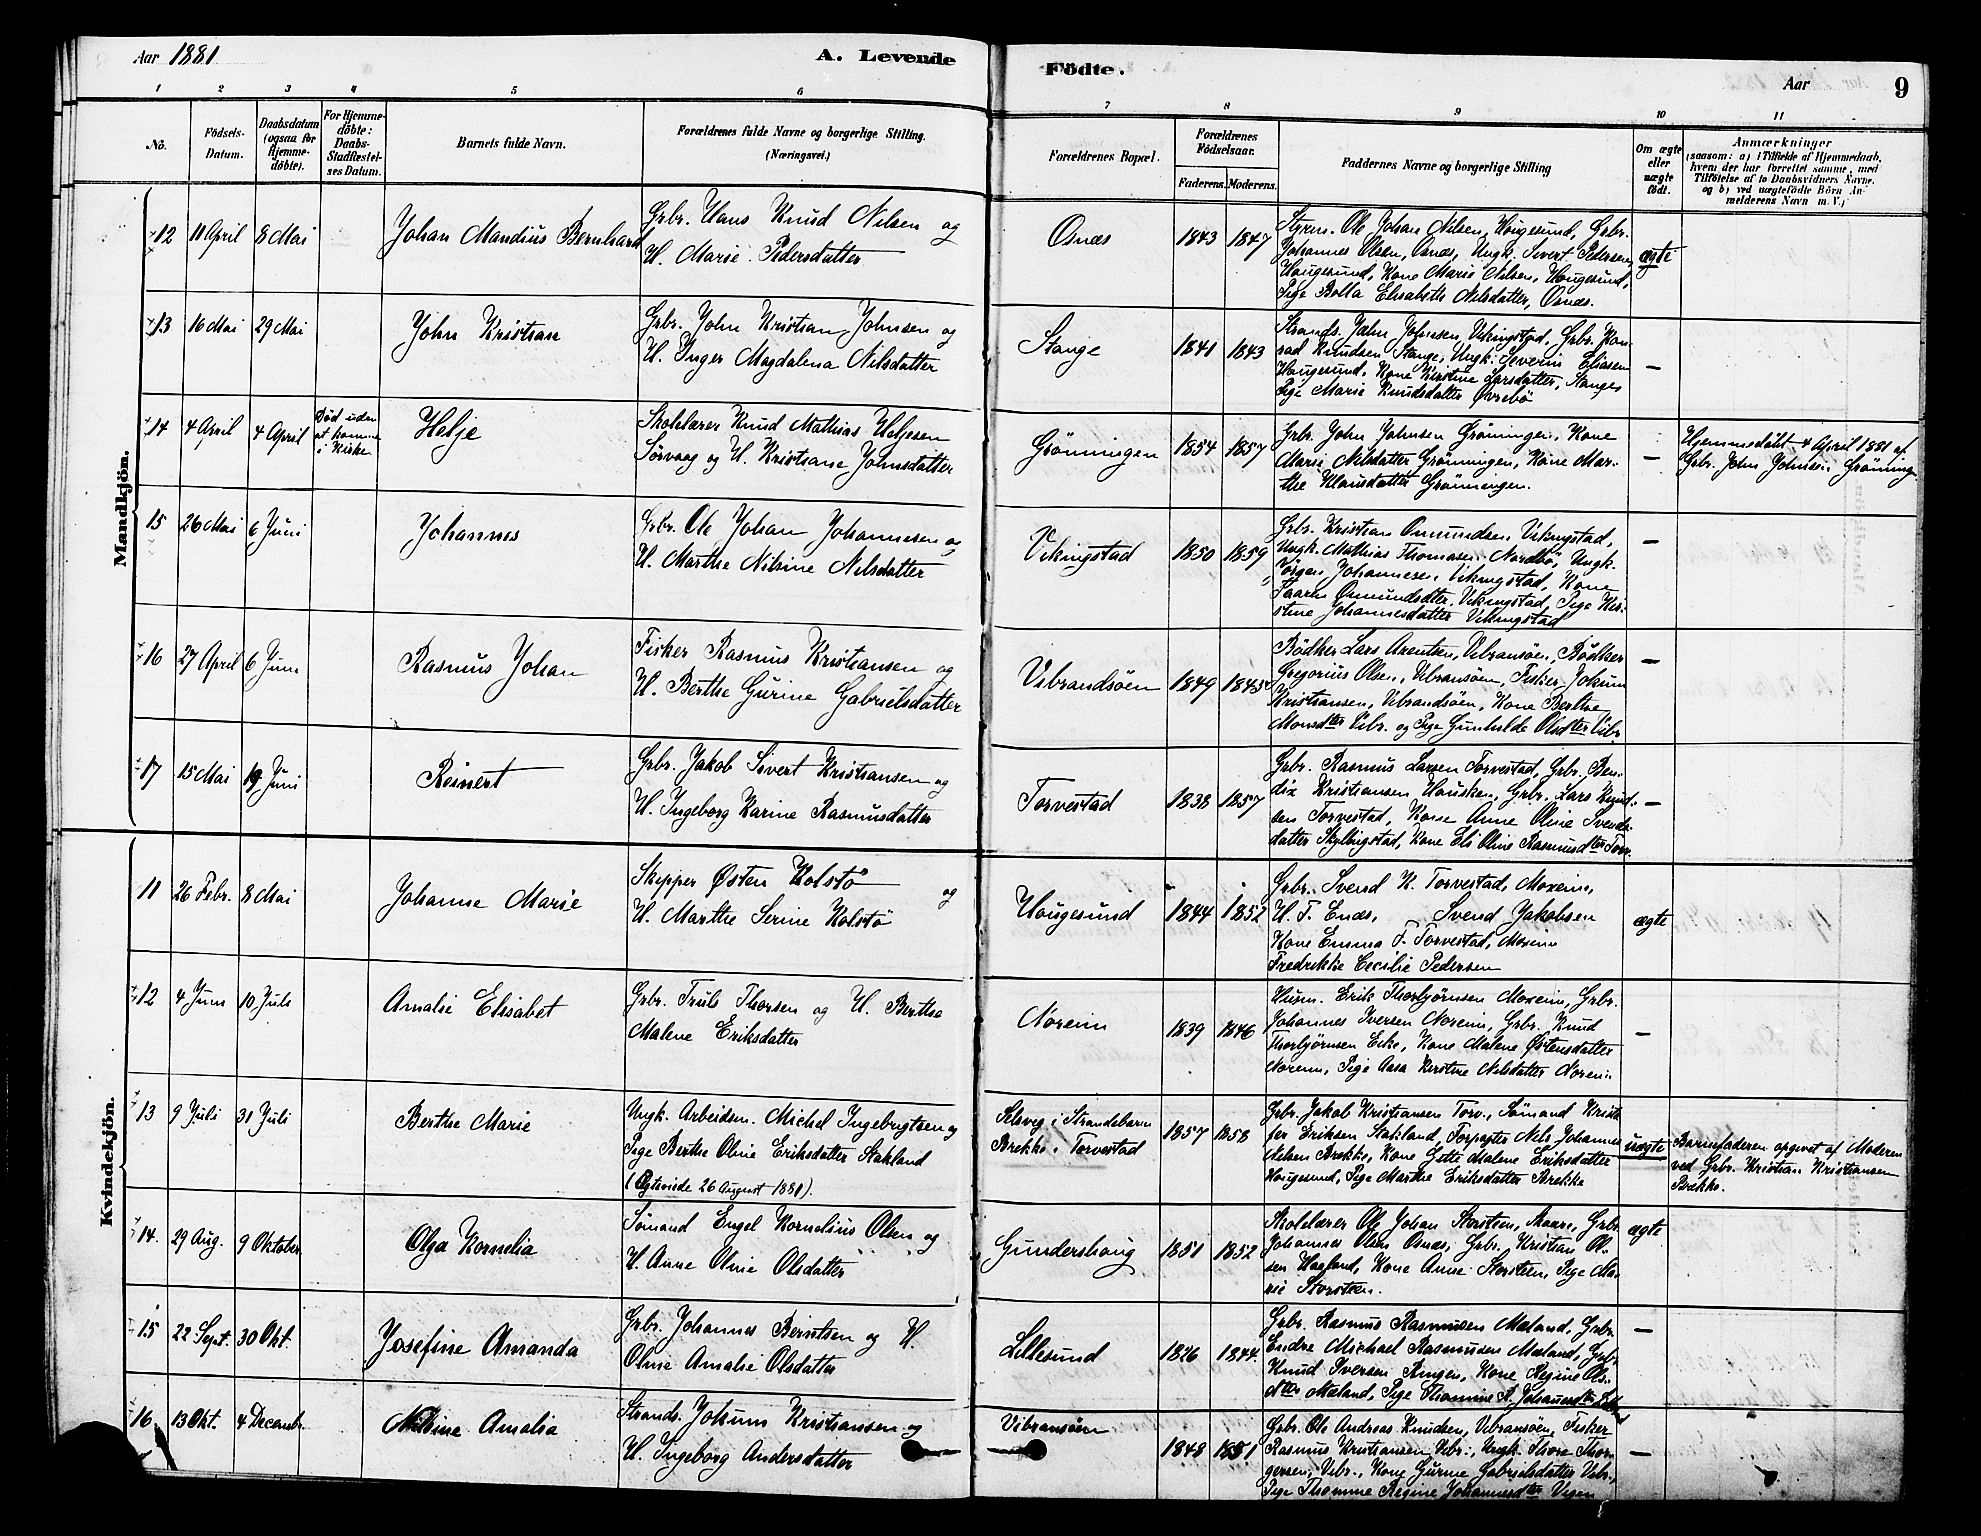 Aar 1881
A. Levende
Födte.
Aar
9
1 2 3 4 5 6 7 8 9 10 11
No.
Födsels-
Datum.
Daabsdatum
(ogsaa för
Hjemme-
döbte).
For Hjemme-
döbte:
Daabs-
Stadfæstel-
ses Datum.
Barnets fulde Navn.
Forældrenes fulde Navne og borgerlige Stilling.
(Næringsvei.)
Forældrenes Bopæl.
Forældrenes
Födselsaar.
Faderens. Moderens.
Faddernes Navne og borgerlige Stilling
Om ægte
eller
uægte
födt.
Anmærkninger
(saasom: a) i Tilfælde af Hjemmedaab,
hvem der har forrettet samme, med
Tilföielse af to Daabsvidners Navne.
og b) ved uægtefödte Börn An-
melderens Navn m. V.)
Mandkjön.
12
11 April
8 Mai
Johan Mandius Bernhard
Grbr. Hans Knud Nilsen og
H. Marie Pedersdatter
Osnæs
1843
1847
Styrm. Ole Johan Nilsen, Hougesund, Grbr.
Johannes Olsen, Osnæs, Ungk. Sivert Pedersen,
Hougesund, Kone Marie Nilsen, Hougesund,
Pige Bolla Elisabeth Nilsdatter, Osnæs.
ægte
13
16 Mai
29 Mai
John Kristian
Grbr. John Kristian Johnsen og
H. Inger Magdalena Nilsdatter
Stange
1841
1843
Strands. John Johnsen Vikingstad, Grbr. Kon-
rad Knudsen Stange, Ungk. Severin Eliasen
Hougesund, Kone Kirstine Larsdatter, Stange,
Pige Marie Knudsdatter Øvrebö
—
14
4 April
4 April
Död uden
at komme
i Kirke
Helje
Skolelærer Knud Mathias Heljesen
Sørvaag og H. Kristiane Johnsdatter
Grönningen
1854
1857
Grbr. John Johnsen Grönningen, Kone
Marie Nilsdatter Grönningen, Kone Mar-
the Klausdatter Grönningen.
—
Hjemmedöbt 4 April 1881 af
Grbr. John Johnsen Grönning
15
26 Mai
6 Juni
Johannes
Grbr. Ole Johan Johannesen og
H. Marthe Nilsine Nilsdatter
Vikingstad
1850
1859
Grbr. Kristian Omundsen Vikingstad,
Ungk. Mathias Thomasen Nordbö, Ungk.
Jörgen Johannesen Vikingstad, Kone
Taarin Omundsdatter, Vikingstad, Pige Kir-
stine Johannesdatter Vikingstad
—
16
27 April
6 Juni
Rasmus Johan
Fisker Rasmus Kristiansen og
H. Berthe Gurine Gabrielsdatter
Vibrandsöen
1849
1845
Bödker Lars Arentsen, Vibransöen, Bödker
Gregorius Olsen, Vibransöen, Fisker Jokum
Kristiansen, Vibrandsöen, Kone Berthe
Monsdter Vibr. og Pige Gunhilde Olsdter Vibr.
—
17
15 Mai
19 Juni
Reinert
Grbr. Jakob Sivert Kristiansen og
H. Ingeborg Karine Rasmusdatter
Torvestad
1838
1857
Grbr. Rasmus Larsen Torvestad, Grbr. Ben-
dix Kristiansen Hausken, Grbr. Lars Knud-
sen Torvestad, Kone Anne Oline Svends-
datter Skylingstad, Kone Eli Oline Rasmusdter Torv.
—
Kvindekjön.
11
26 Febr.
8 Mai
Johanne Marie
Skipper Østen Kolstø og
H. Marthe Serine Kolstø
Hougesund
1844
1852
Grbr. Svend K. Torvestad, Moxeim,
H. T. Endes, Svend Jakobsen
Kone Emma T. Torvestad, Moxeim
Fredrikke Cecilie Pedersen
ægte
12
4 Juni
10 Juli
Amalie Elisabet
Grbr. Truls Thorsen og H. Berthe
Malene Eriksdatter
Noreim
1839
1846
Husm. Erik Thorbjörnsen Moxeim, Grbr.
Johannes Iversen Noreim, Grbr. Knud
Thorbjörnsen Eike, Kone Malene Østensdatter
Noreim, Pige Aasa Kirstine Nilsdatter Noreim
—
13
9 Juli
31 Juli
Berthe Marie
Ungk. Arbeidsm. Michel Ingebrigtsen og
Pige Berthe Oline Eriksdatter Stakland
(Ægteviede 26 August 1881).
i Strandebarm
Brekke i Torvestad
1857
1858
Grbr. Jakob Kristiansen Torv., Sömand Krist-
fer Eriksen Stakland, Johannes
Nilsen Brekke, Kone Gitte Malene Eriksdatter
Hougesund, Pige Marthe Eriksdatter Brekke
uægte
Barnefaderen opgivet af Moderen
ved Grbr. Kristian Kristiansen
Brække.
14.
29 Aug.
9 Oktober
Olga Kornelia
Sömand Engel Kornelius Olsen og
H. Anne Oline Olsdatter
Gundershaug
1851
1852
Skolelærer Ole Johan Storsteen, Maare, Grbr.
Johannes Olsen Osnæs, Grbr. Kristian Ol-
sen Haaland, Kone Anne Storsteen, Pige Ma-
rie Storsteen.
ægte
15
22 Sept.
30 Okt.
Josefine Amanda
Grbr. Johannes Berntsen og H.
Oline Amalie Olsdatter
Lillesund
1826
1844.
Grbr. Rasmus Rasmusen Mæland, Grbr.
Endre Michael Rasmusen Mæland, Grbr.
Knud Iversen Ringen, Kone Regine Ols-
dtter Mæland, Pige Thomine R. Johannesdtr
—
16
13 Okt.
4 Decembr.
Amalia
Strands. Jokum Kristiansen og
H. Ingeborg Andersdatter
Vibransöen
1848
1851
Grbr. Ole Andreas Knudsen, Vibransöen, Fisker
Rasmus Kristiansen Vibr., Ungk. Thore Thor-
gersen, Vibr., Kone Gurine Gabrielsdatter Vibr.,
Pige Thomine Regine Johannesdtr
—